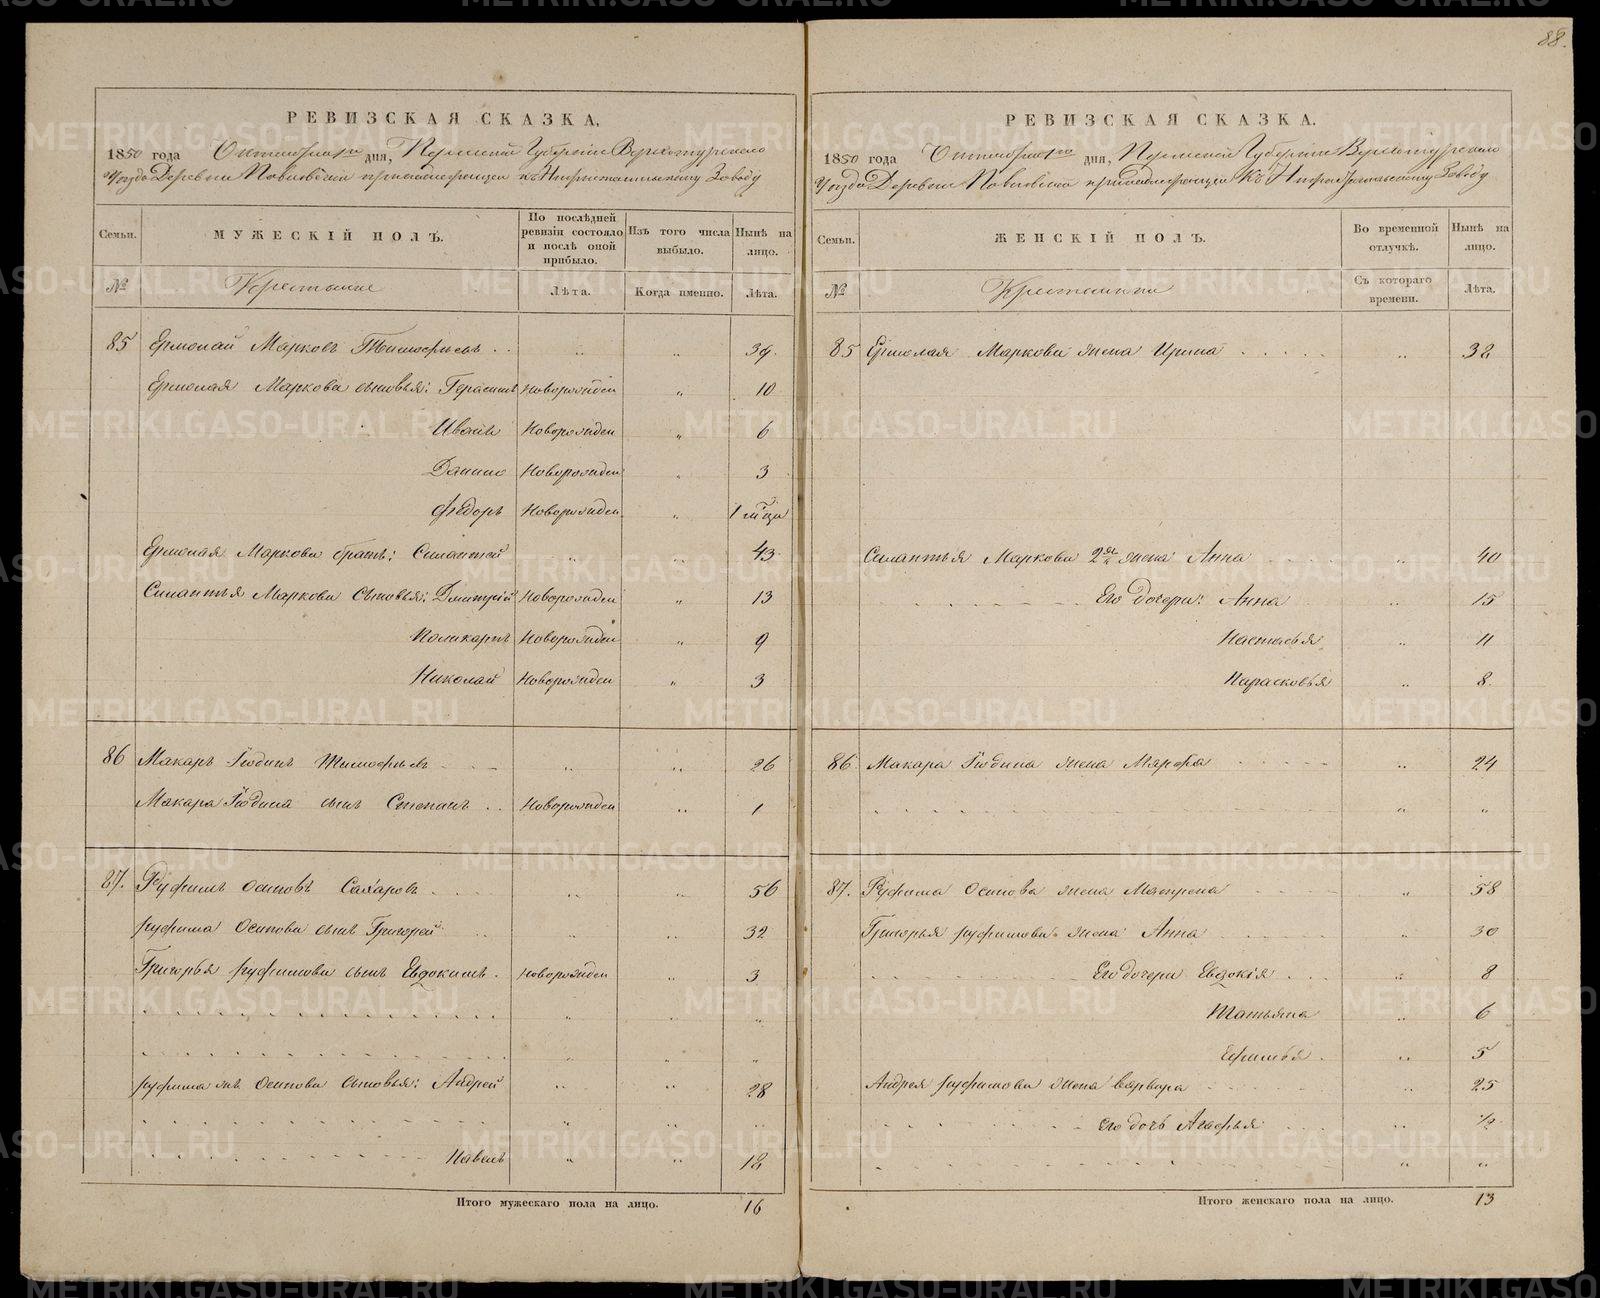 88.
РЕВИЗСКАЯ СКАЗКА.
1850 года Октября 1го дня, Пермской Губернiи Верхотурскаго
Уѣзда Деревни Павловской принадлежащей къ Заводу
Семьи. МУЖЕСКIЙ ПОЛЪ. По послѣдней ревизiи состояло и послѣ оной прибыло. Изъ того числа выбыло. Нынѣ на лицо.
№ Крестьяне Лѣта. Когда именно. Лѣта.
85 Ермолай Марковъ Тимофѣевъ . . " " 39.
Ермолая Маркова сыновья: Герасимъ Новорожден " 10
Иванъ Новорожден " 6
Данило Новорожден " 3
Федоръ Новорожден " 1 мца
Ермолая Маркова братъ: Силантей " " 43
Силантья Маркова сыновья: Дмитрiй Новорожден " 13
Поликарпъ Новорожден " 9
Николай Новорожден " 3
86 Макаръ Iюдинъ Тимофѣевъ " " 26
Макара Iюдина сынъ Степанъ . . Новорожден " 1
87. Руфимъ Осиповъ Сахаровъ " " 56
Руфима Осипова сынъ Григорей " " 32
Григорья Руфимова сынъ Евдокимъ . Новорожден " 3
" " "
" " "
Руфима же Осипова сыновья: Андрей " " 28
" " "
Павелъ " " 18
Итого мужескаго пола на лицо. 16
РЕВИЗСКАЯ СКАЗКА.
1850 года Октября 1го дня, Пермской Губернiи Верхотурскаго
Уѣзда Деревни Павловской принадлежащей Къ Заводу
Семьи. ЖЕНСКIЙ ПОЛЪ. Во временной отлучкѣ. Нынѣ на лицо.
№ Крестьянки Съ котораго времени. Лѣта.
85 Ермолая Маркова жена Ирина " 38
Силантья Маркова 2я жена Анна " 40
Его дочери: Анна " 15
Настасья " 11
Парасковья " 8
86. Макара Iюдина жена Марфа " 24
" "
87. Руфима Осипова жена Матрена " 58
Григорья Руфимова жена Анна " 30
Его дочери Евдокiя " 8
Татьяна " 6
Ефимья . " 5
Андрея Руфимова жена Варвара " 25
Его дочь Агафья " 1/2
" "
Итого женскаго пола на лицо. 13
METRIKI.GASO-URAL.RU